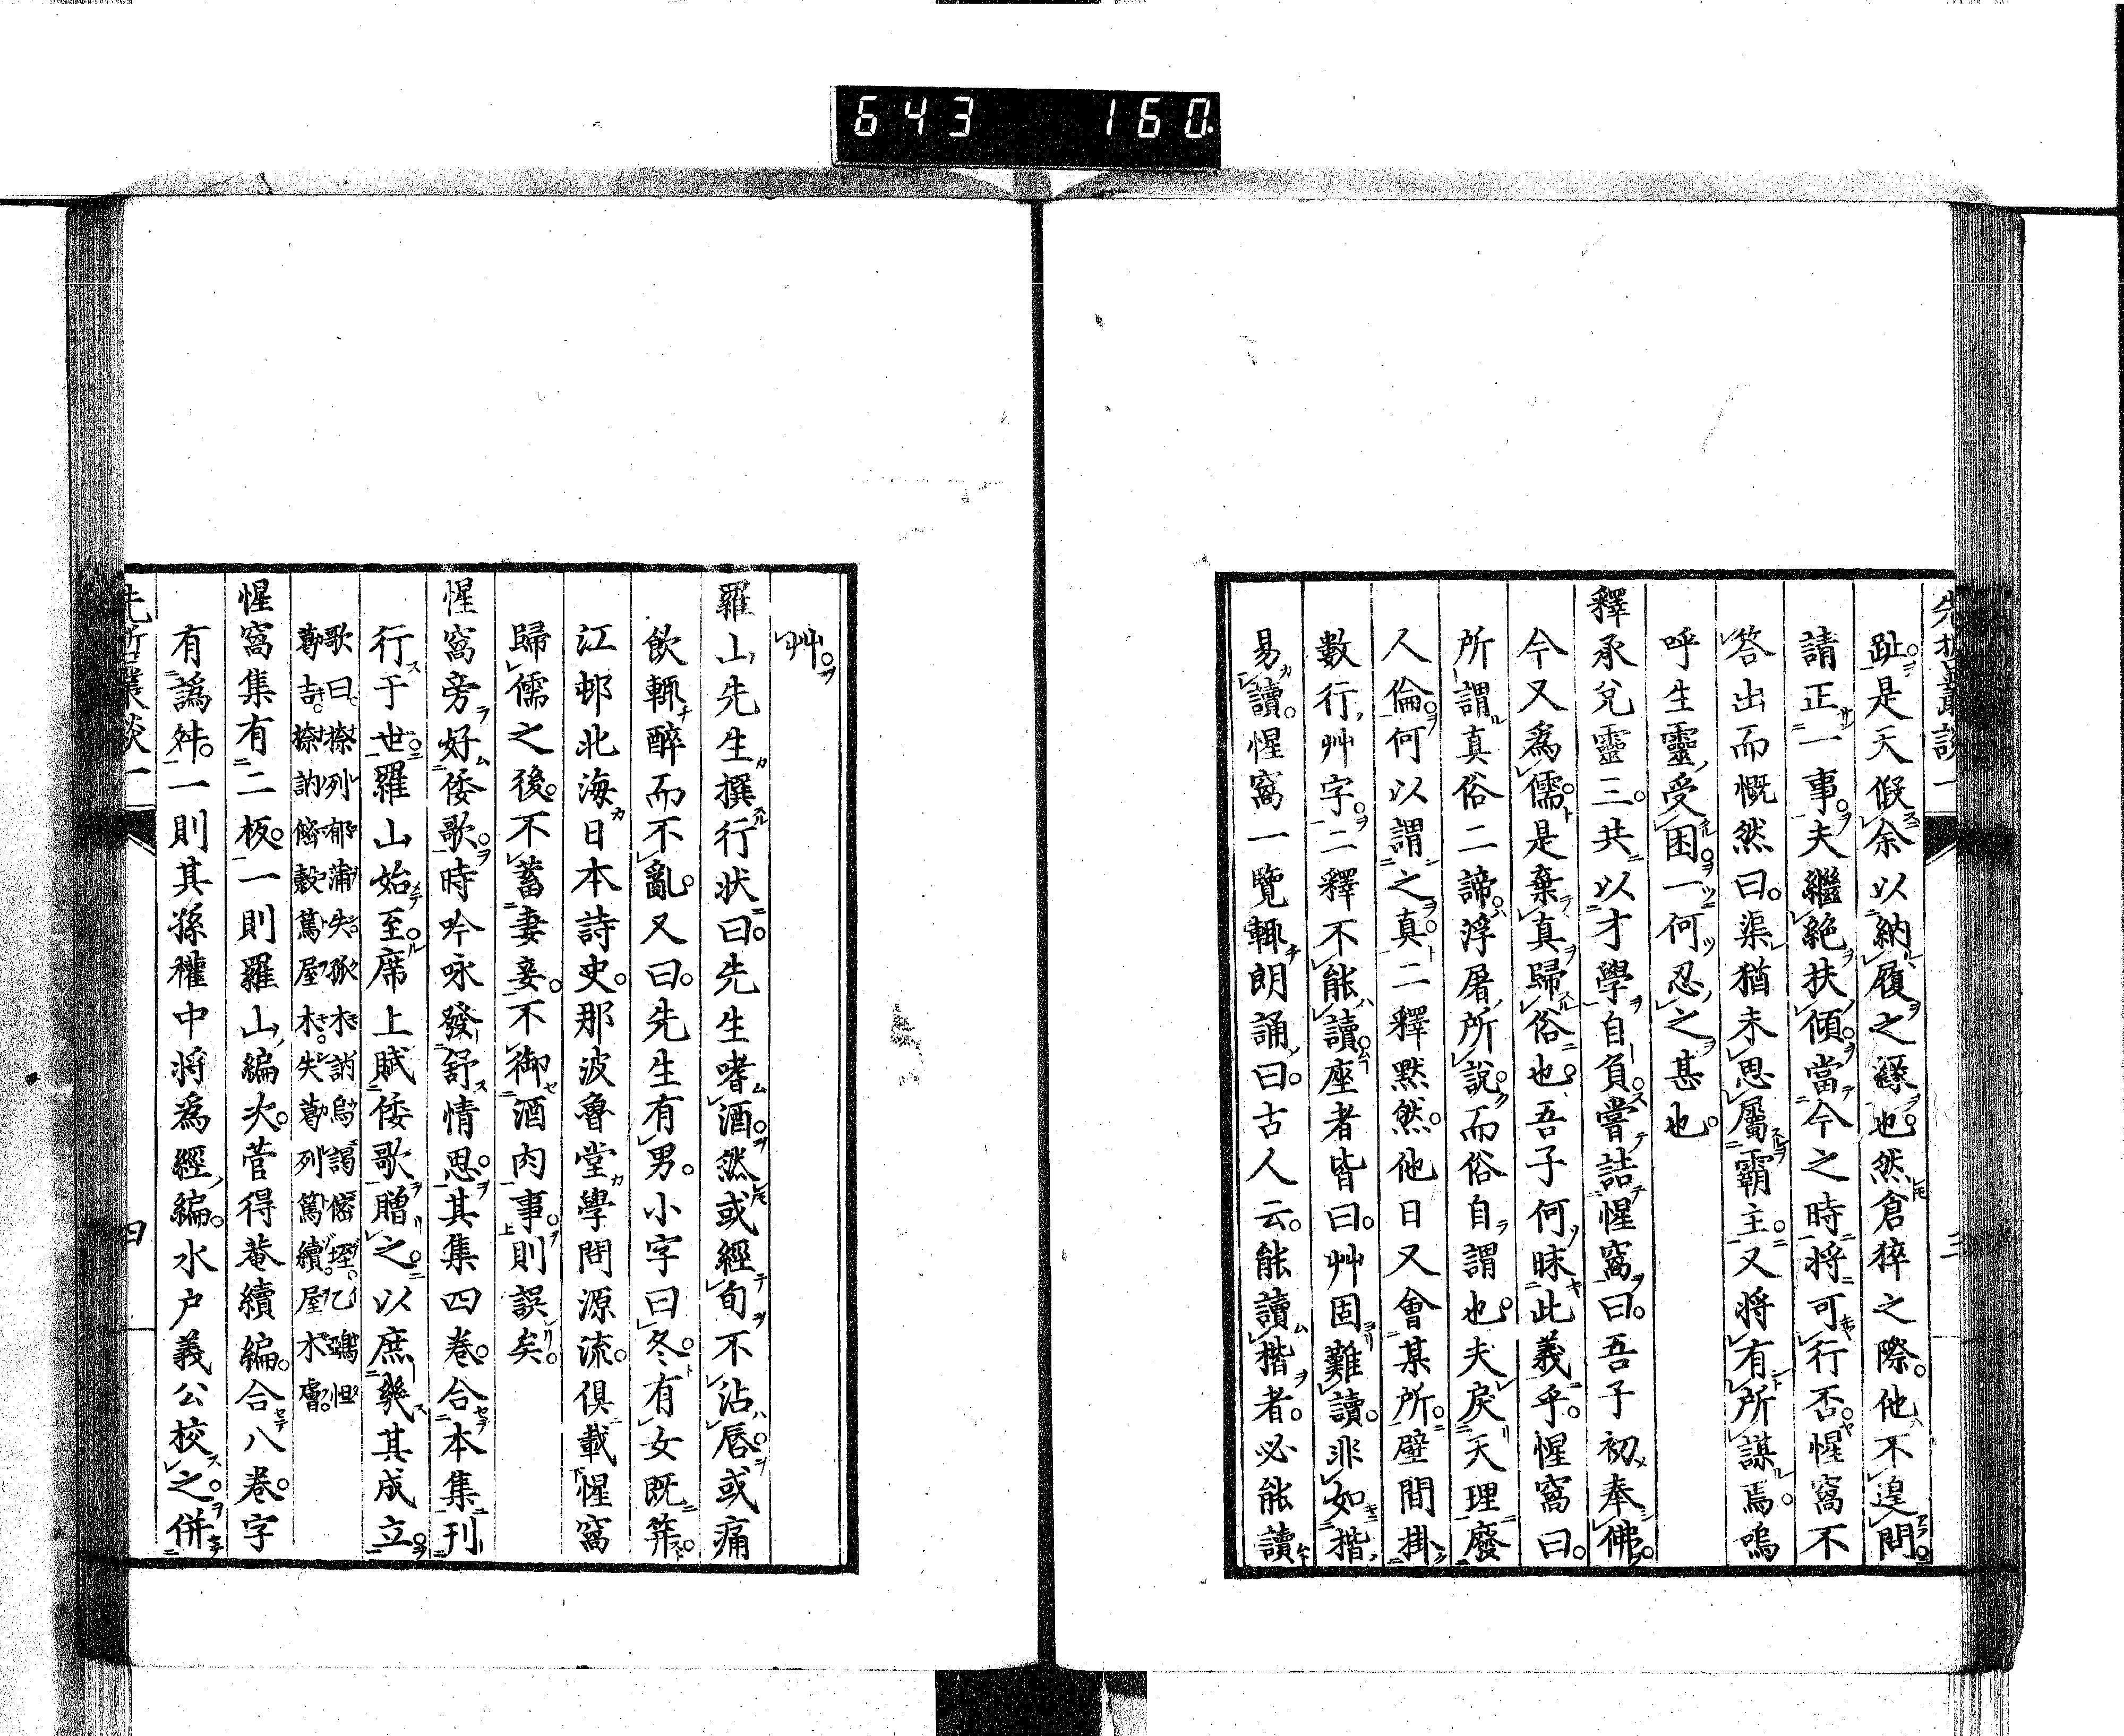 643 160
先哲叢談一 三
趾是天假余以納履之縁也然倉猝之際他不遑問
請正一事夫繼絶扶傾當今之時將可行否惺窩不
答出而慨然曰渠猶未思屬霸主又將有所謀焉嗚
呼生靈受困一何忍之甚也
釋承兌靈三共以才學自負嘗詰惺窩曰吾子初奉佛
今又爲儒是棄真歸俗也吾子何昧此義乎惺窩曰
所謂真俗二諦浮屠所説而俗自謂也夫戾天理廢
人倫何以謂之真二釋默然他日又會某所壁間掛
數行艸字二釋不能讀座者皆曰艸固難讀非如楷
易讀惺窩一覽輙朗誦曰古人云能讀楷者必能讀
艸
羅山先生撰行状曰先生嗜酒然或經旬不沾唇或痛
飲輙醉而不亂又曰先生有男小字曰冬有女既筓
江邨北海日本詩史那波魯堂學問源流俱載惺窩
歸儒之後不蓄妻妾不御酒肉事則誤矣
惺窩旁好倭歌時吟咏發舒情思其集四卷合本集刊
行于世羅山始至席上賦倭歌贈之以庶幾其成立
歌曰捺列郁蒲失孤木訥烏謁
惺窩集有二板一則羅山編次菅得菴續編合八卷字
有譌舛一則其孫權中將爲經編水户義公校之併
先哲叢談一 四